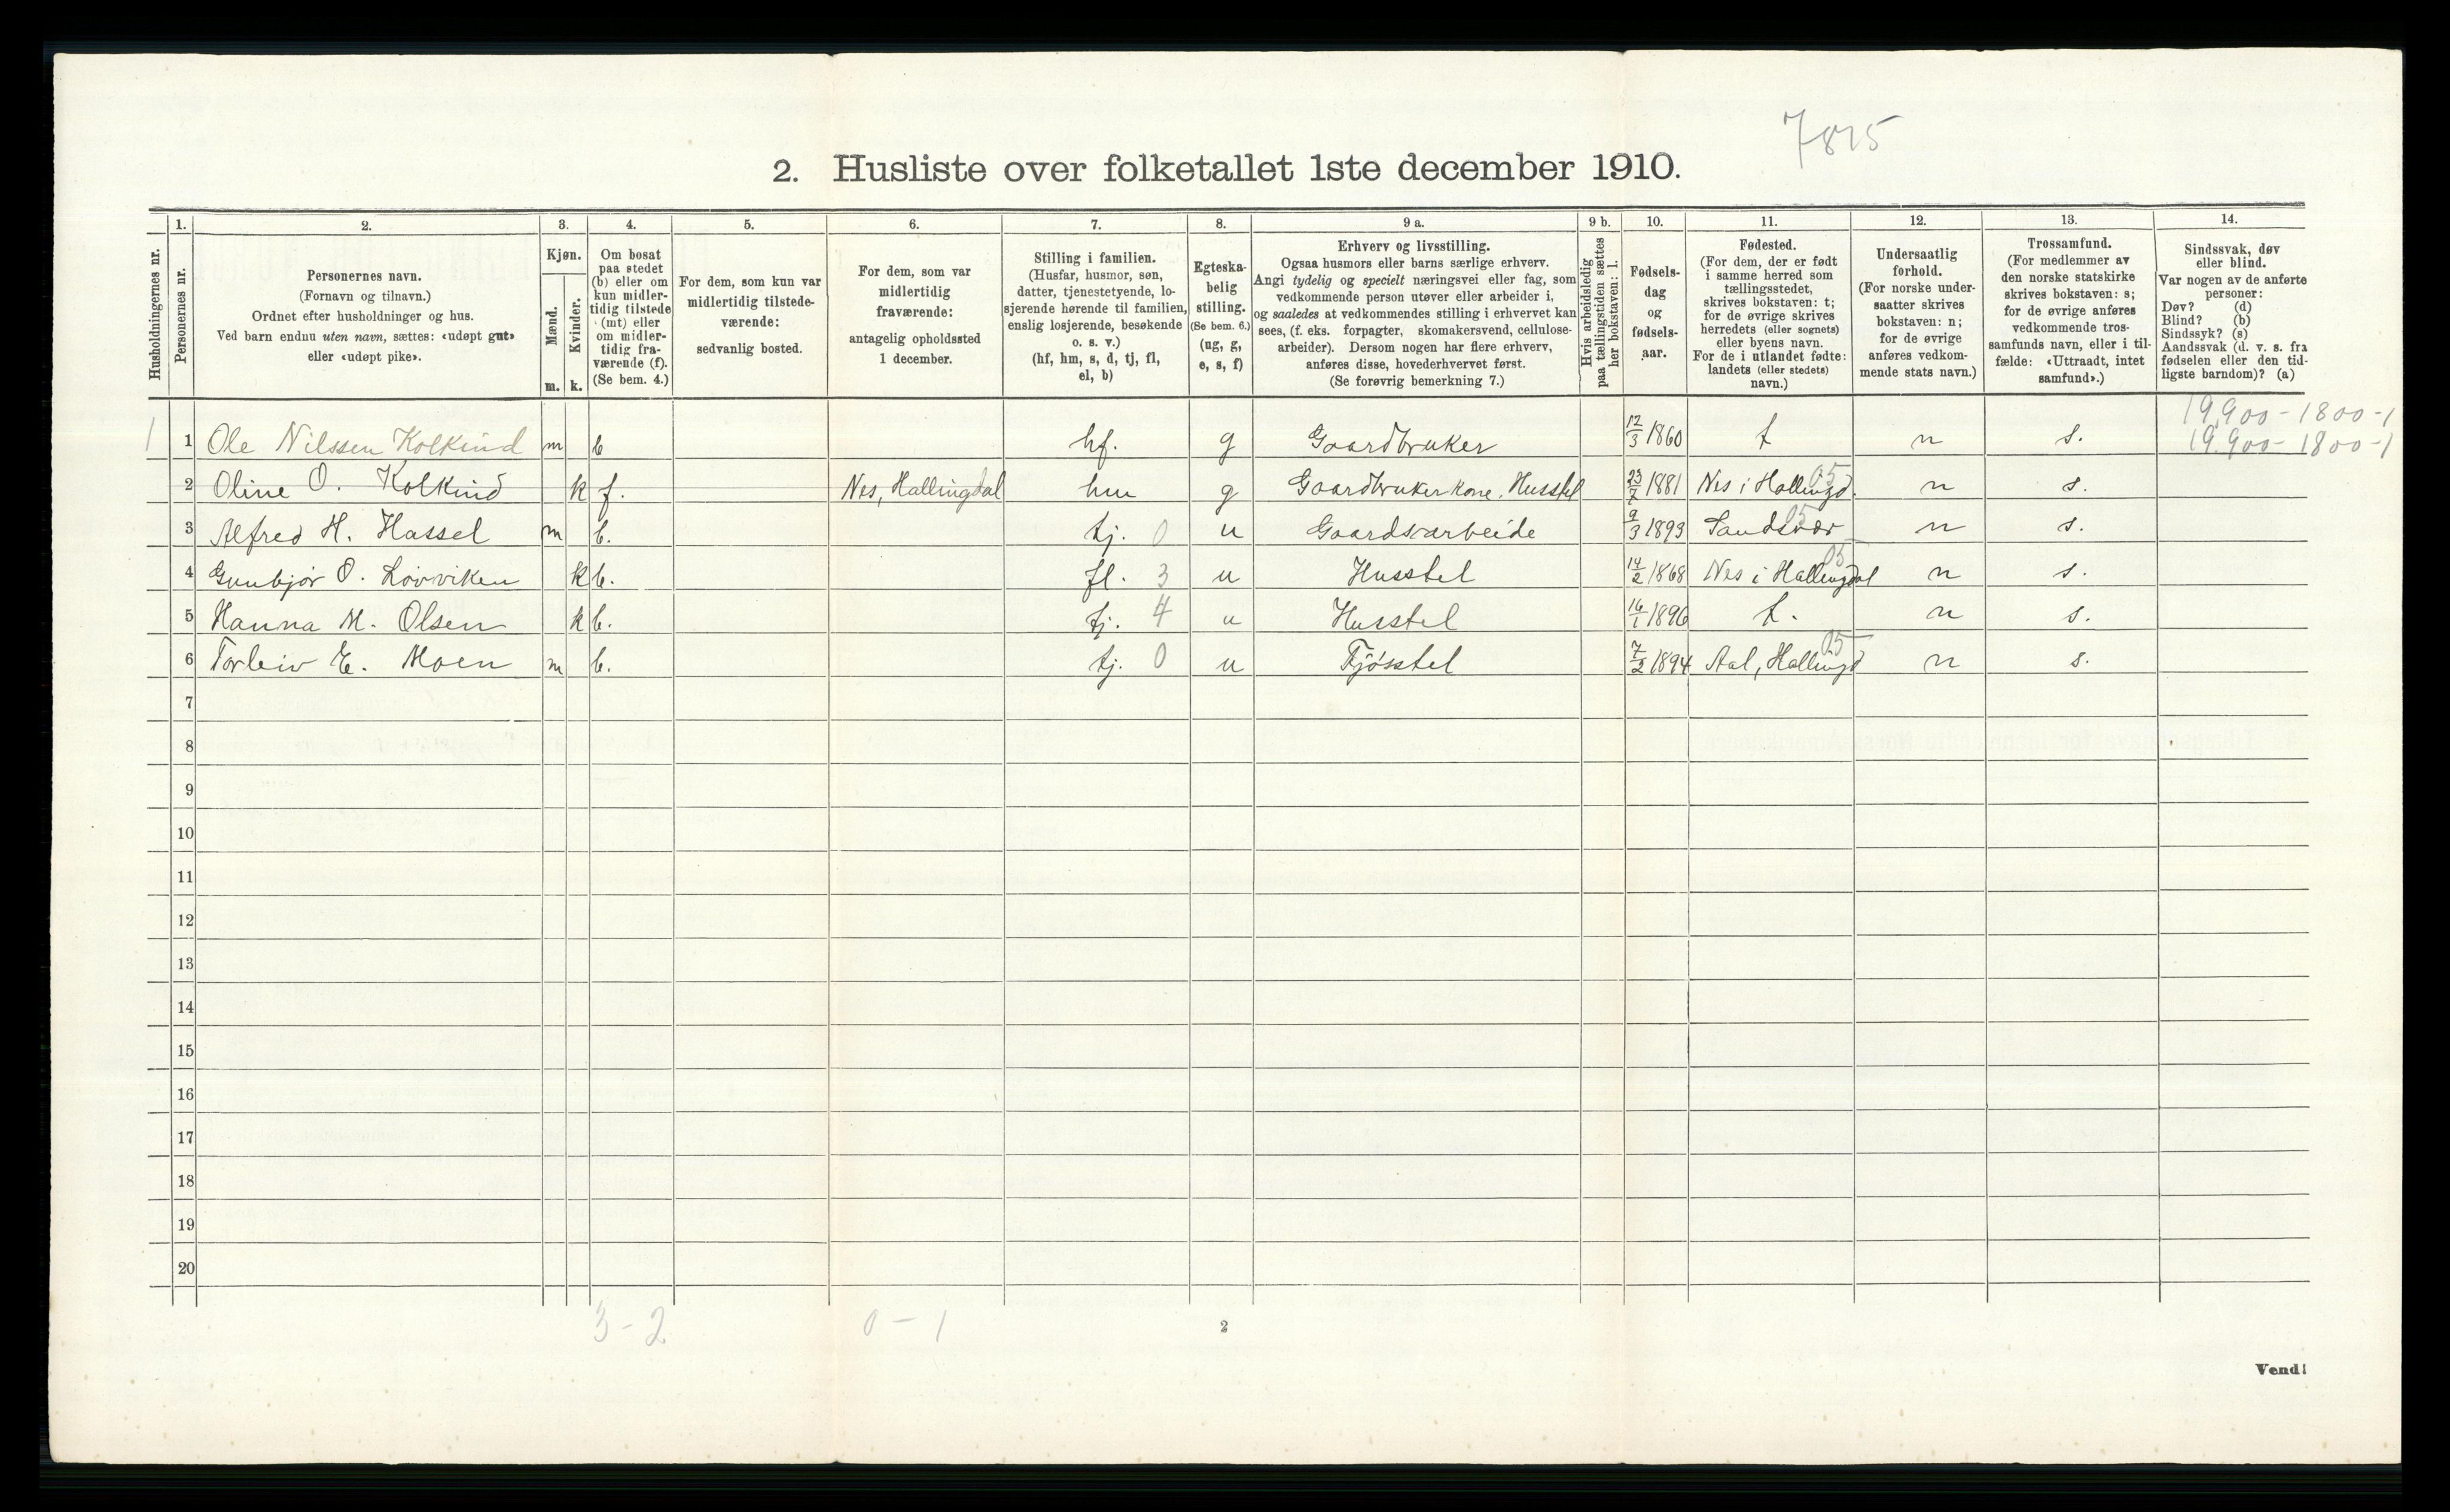 7815
2. Husliste over folketallet 1ste december 1910.
Husholdningernes nr.
1.
Personernes nr.
2.
Personernes navn.
(Fornavn og tilnavn.)
Ordnet efter husholdninger og hus.
Ved barn endnu uten navn, sættes: «udøpt gut»
eller «udøpt pike».
3.
Kjøn.
Mænd.
m.
Kvinder.
k.
4.
Om bosat
paa stedet
(b) eller om
kun midler-
tidig tilstede
(mt) eller
om midler-
tidig fra-
værende (f).
(Se bem. 4.)
5.
For dem, som kun var
midlertidig tilstede-
værende:
sedvanlig bosted.
6.
For dem, som var
midlertidig
fraværende:
antagelig opholdssted
1 december.
7.
Stilling i familien.
(Husfar, husmor, søn,
datter, tjenestetyende, lo-
sjerende hørende til familien,
enslig losjerende, besøkende
o. s. v.)
(hf, hm, s, d, tj, fl,
el, b)
8.
Egteska-
belig
stilling.
(Se bem. 6.)
(ug, g,
e, s, f)
9 a.
Erhverv og livsstilling.
Ogsaa husmors eller barns særlige erhverv.
Angi tydelig og specielt næringsvei eller fag, som
vedkommende person utøver eller arbeider i,
og saaledes at vedkommendes stilling i erhvervet kan
sees, (f. eks. forpagter, skomakersvend, cellulose-
arbeider). Dersom nogen har flere erhverv,
anføres disse, hovederhvervet først.
(Se forøvrig bemerkning 7.)
9 b.
Hvis arbeidsledig
paa tællingstiden sættes
her bokstaven: l.
10.
Fødsels-
dag
og
fødsels-
aar.
11.
Fødested.
(For dem, der er født
i samme herred som
tællingsstedet,
skrives bokstaven: t;
for de øvrige skrives
herredets (eller sognets)
eller byens navn.
For de i utlandet fødte:
landets (eller stedets)
navn.)
12.
Undersaatlig
forhold.
(For norske under-
saatter skrives
bokstaven: n;
for de øvrige
anføres vedkom-
mende stats navn.)
13.
Trossamfund.
(For medlemmer av
den norske statskirke
skrives bokstaven: s;
for de øvrige anføres
vedkommende tros-
samfunds navn, eller i til-
fælde: «Uttraadt, intet
samfund».)
14.
Sindssvak, døv
eller blind.
Var nogen av de anførte
personer:
Døv? (d)
Blind? (b)
Sindssyk? (s)
Aandssvak (d. v. s. fra
fødselen eller den tid-
ligste barndom)? (a)
19,900-1800-1
1 1 Ole Nilssen Kolkind m b hf. g Gaardbruker 12/3 1860 t n s. 19.900-1800-1
2 Oline O. Kolkind k f. Nes, Hallingdal hm g Gaardbrukerkone, Husstel 23/7 1881 Nes i Hallingd. 05 n s.
3 Alfred H. Hassel m b. tj. 0 u Gaardsarbeide 9/3 1893 Sandsvær 05 n s.
4 Gunbjør O. Lovviken k b. fl. 3 u Husstel 14/2 1868 Nes i Hallingdal 05 n s.
5 Hanna M. Olsen k b. tj. 4 u Husstel 16/1 1896 t. n s.
6 Torleiv E. Moen m b. tj. 0 u Fjøsstel 7/2 1894 Aal, Hallingd 05 n s.
7
8
9
10
11
12
13
14
15
16
17
18
19
20
3-2 0-1
2
Vend!